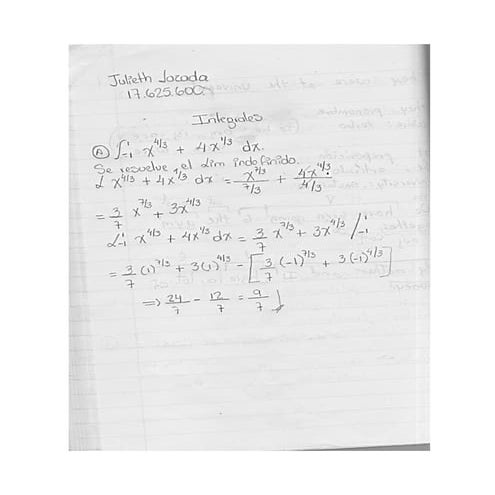 Julieth Lozada
17.625.600.
Integrales
Ⓐ ∫₋₁¹ x^4/3 + 4x^1/3 dx.
Se resuelve el Lim indefinido.
∫ x^4/3 + 4x^1/3 dx = x^7/3 / 7/3 + 4x^4/3 / 4/3
= 3/7 x^7/3 + 3x^4/3
∫₋₁¹ x^4/3 + 4x^1/3 dx = 3/7 x^7/3 + 3x^4/3 /₋₁¹
= 3/7 (1)^7/3 + 3(1)^4/3 - [3/7 (-1)^7/3 + 3(-1)^4/3]
⇒ 24/7 - 12/7 = 9/7